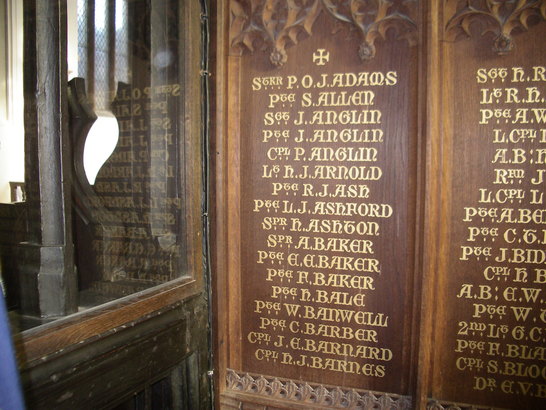 STKR P.O.J.ADAMS
PTE S.ALLEN
SGT J.ANGLIN
PTE J.ANGLIN
CPL P.ANGLIN
LT H.J.ARNOLD
PTE R.J.ASH
PTE L.J.ASHFORD
SPR H.ASHTON
SPR A.BAKER
PTE E.E.BAKER
PTE F.BAKER
PTE H.BALE
PTE W.BANWELL
PTE C.BARBER
CPL J.E.BARNARD
CPL H.J.BARNES
SGT H.R
LT R.H.
PTE A.W
L.CPL
A.B: H.
RFM J.
L.CPL L
PTE A.BE
PTE C.G.
PTE J.BID
CPL H.B
A.B: E.W.
PTE G.W.
2ND LT G.
PTE F.BLA
CPL S.BLO
DR E.V.